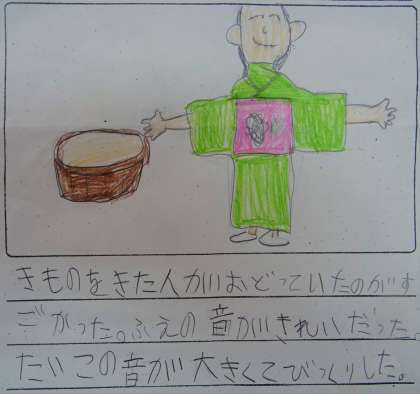 きものをきた人がおどっていたのがす
ごかった。ふえの音がきれいだった。
たいこの音が大きくてびっくりした。